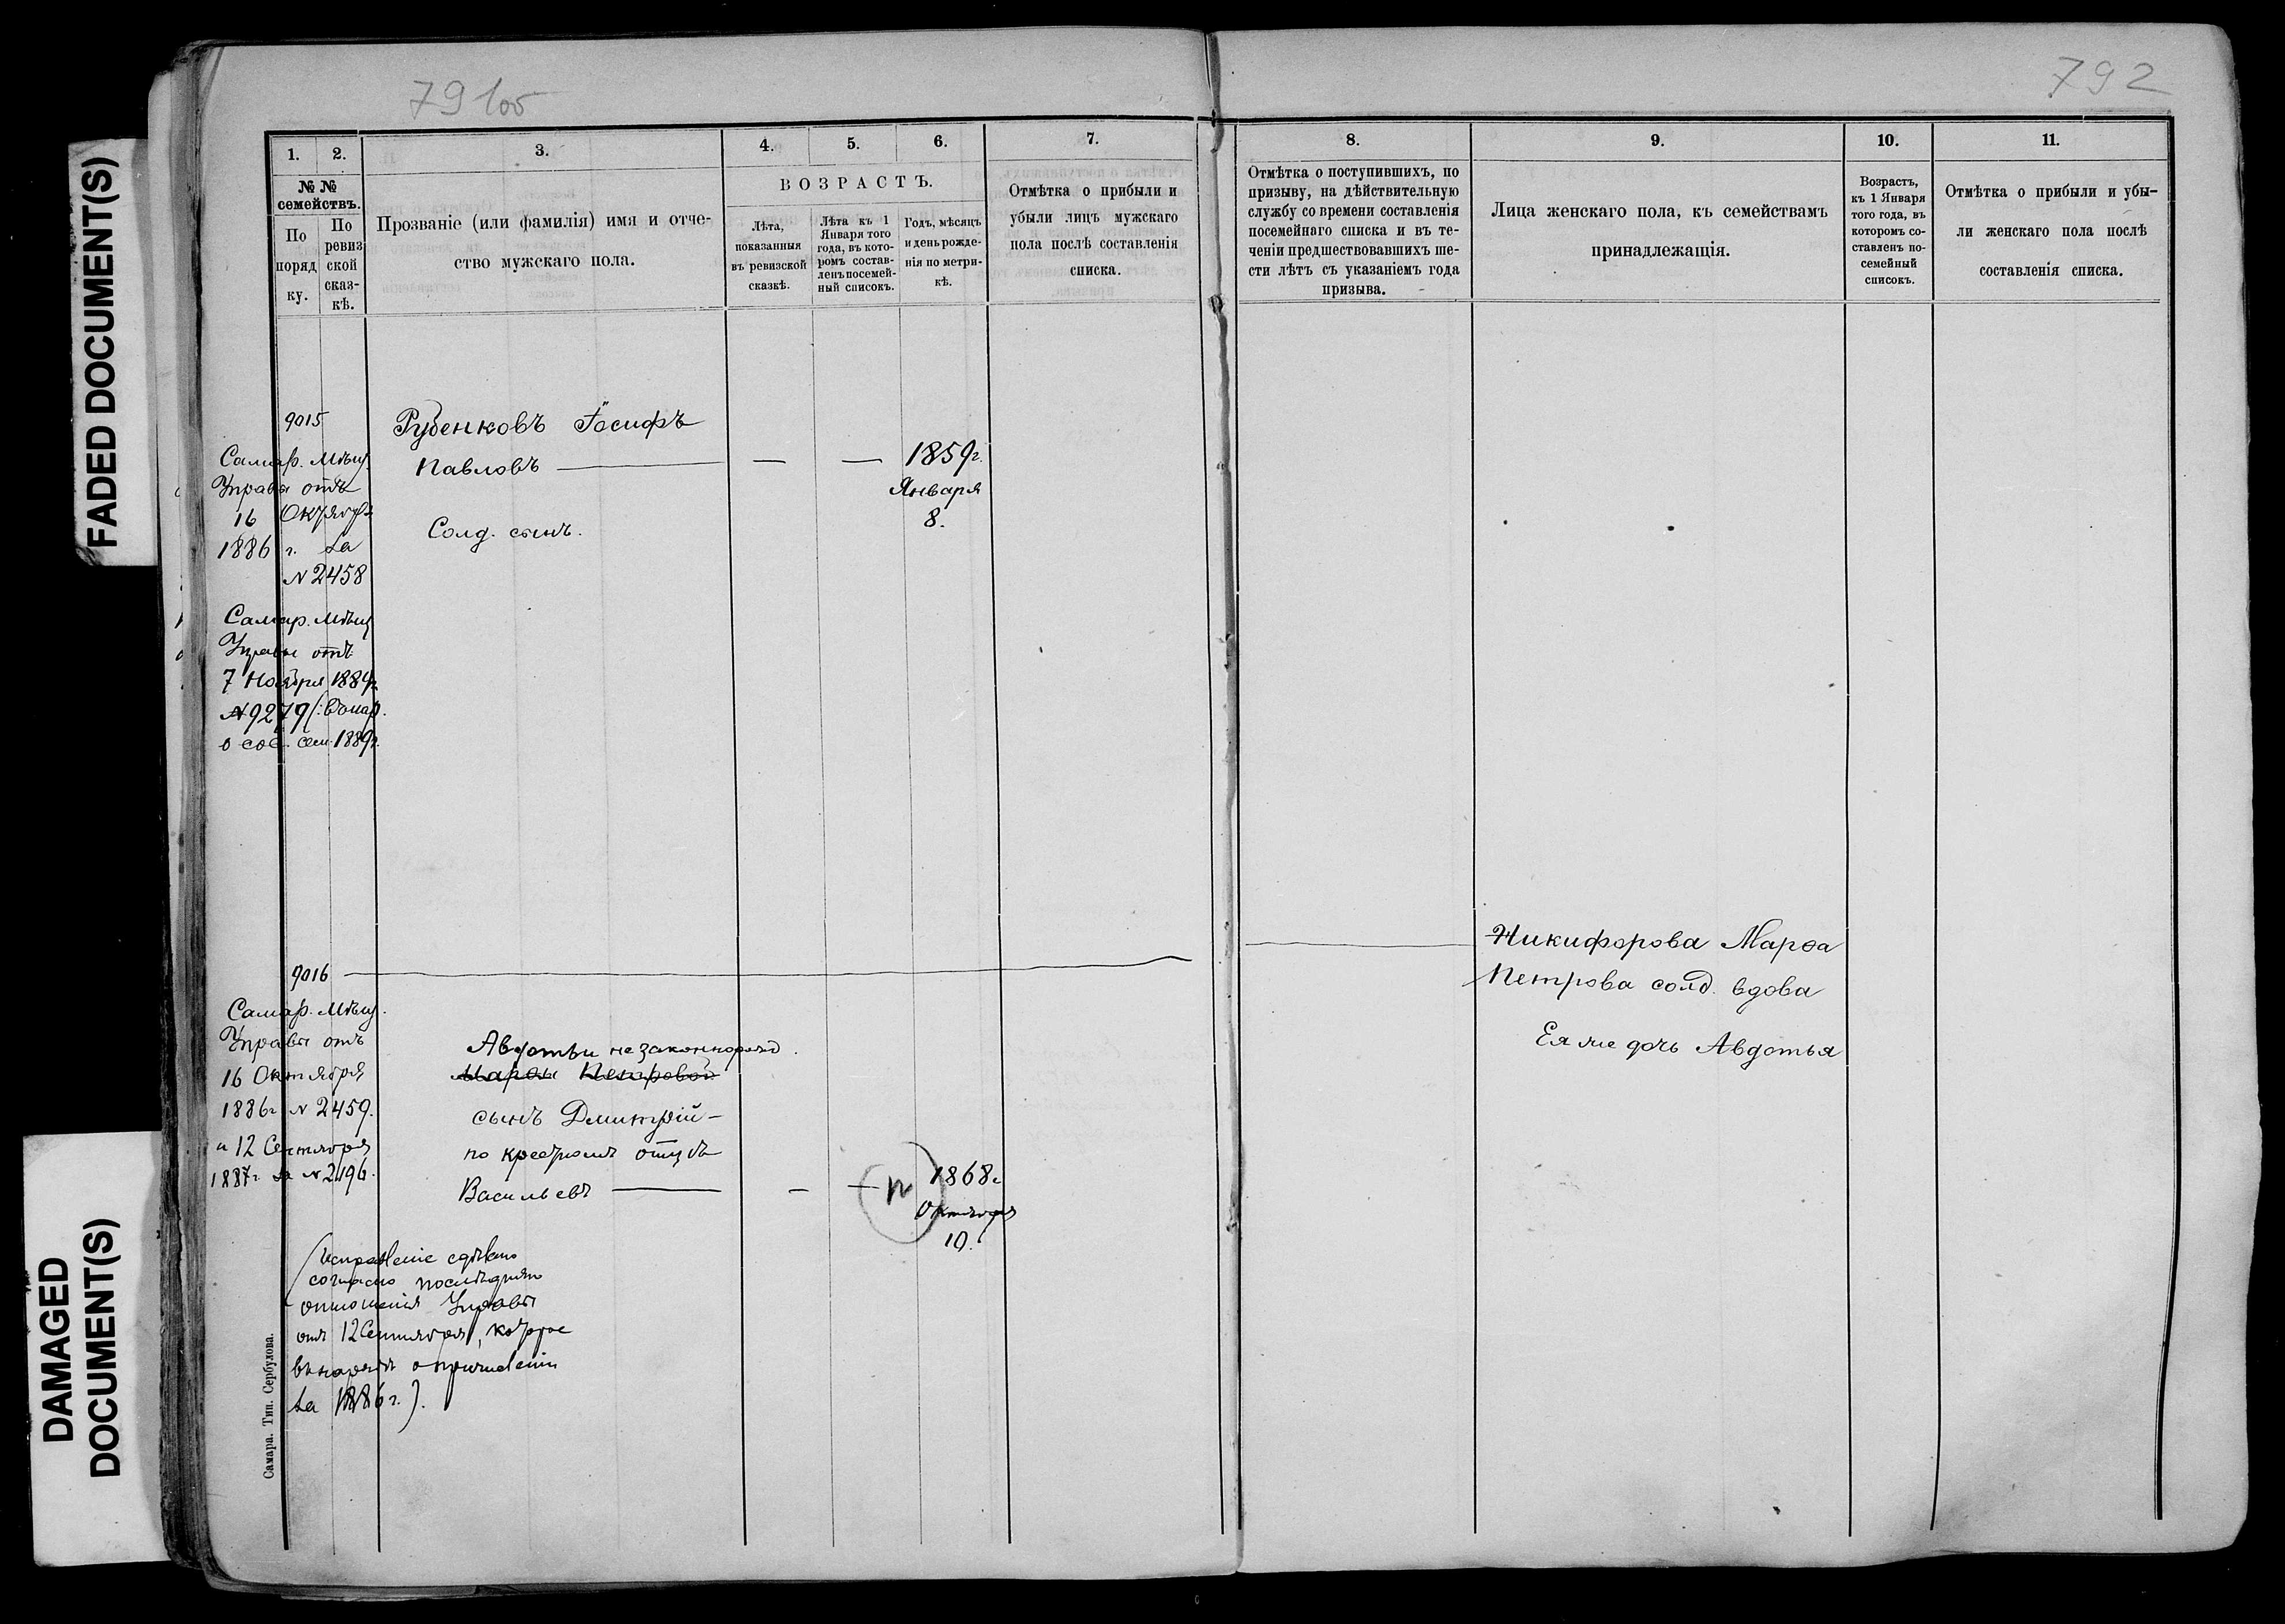 FADED DOCUMENT(S)
DAMAGED
DOCUMENT(S)
791об
792
1.
2.
3.
4.
5.
6.
7.
№ №
семействъ.
По
поряд
ку.
По
ревиз
ской
сказ-
кѣ.
Прозваніе (или фамилія) имя и отче-
ство мужскаго пола.
ВОЗРАСТЪ.
Лѣта,
показанныя
въ ревизской
сказкѣ.
Лѣта къ 1
Января того
года, въ кото-
ромъ состав-
ленъ посемей-
ный списокъ.
Годъ, мѣсяцъ
и день рожде-
нія по метри-
кѣ.
Отмѣтка о прибыли и
убыли лицъ мужскаго
пола послѣ составленія
списка.
8.
9.
10.
11.
Отмѣтка о поступившихъ, по
призыву, на дѣйствительную
службу со времени составленія
посемейнаго списка и въ те-
ченіи предшествовавшихъ ше-
сти лѣтъ съ указаніемъ года
призыва.
Лица женскаго пола, къ семействамъ
принадлежащія.
Возрастъ,
къ 1 Января
того года, въ
которомъ со-
ставленъ по-
семейный
списокъ.
Отмѣтка о прибыли и убы-
ли женскаго пола послѣ
составленія списка.
9015
Самар. Мѣщ.
Управы отъ
16 Октября
1886 г. за
№ 2458
Самар. Мѣщ
Управы отъ
7 Ноября 1889г.
№ 9279 (:въ нар.
о сос. сем. 1889г.
Рубенковъ Іосифъ
Павловъ — — —
Солд. сынъ.
1859г.
Января
8.
9016
Самар. Мѣщ.
Управы отъ
16 Октября
1886г. № 2459.
и 12 Сентября
1887г. за № 2196.
Авдотьи незаконнорожд.
Марѳы Петровой
сынъ Дмитрій –
по крестномъ отцѣ
Васильевъ — — —
1868г.
Октября
10.
(Исправленіе сдѣлано
согласно послѣдняго
отношенія Управы
отъ 12 Сентября, которое
въ нарядѣ о причисленіи
за 1886 г.).
Никифорова Марѳа
Петрова солд. вдова
Ея же дочь Авдотья
Самара. Тип. Сербулова.